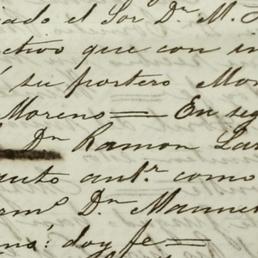 iado el Sor Dr. M.
ctivo que con in
su portero Mor
Moreno= En seg
Dn Ramon Lar
auto antr. como
erm.o Dn Manue
ma: doy fe=